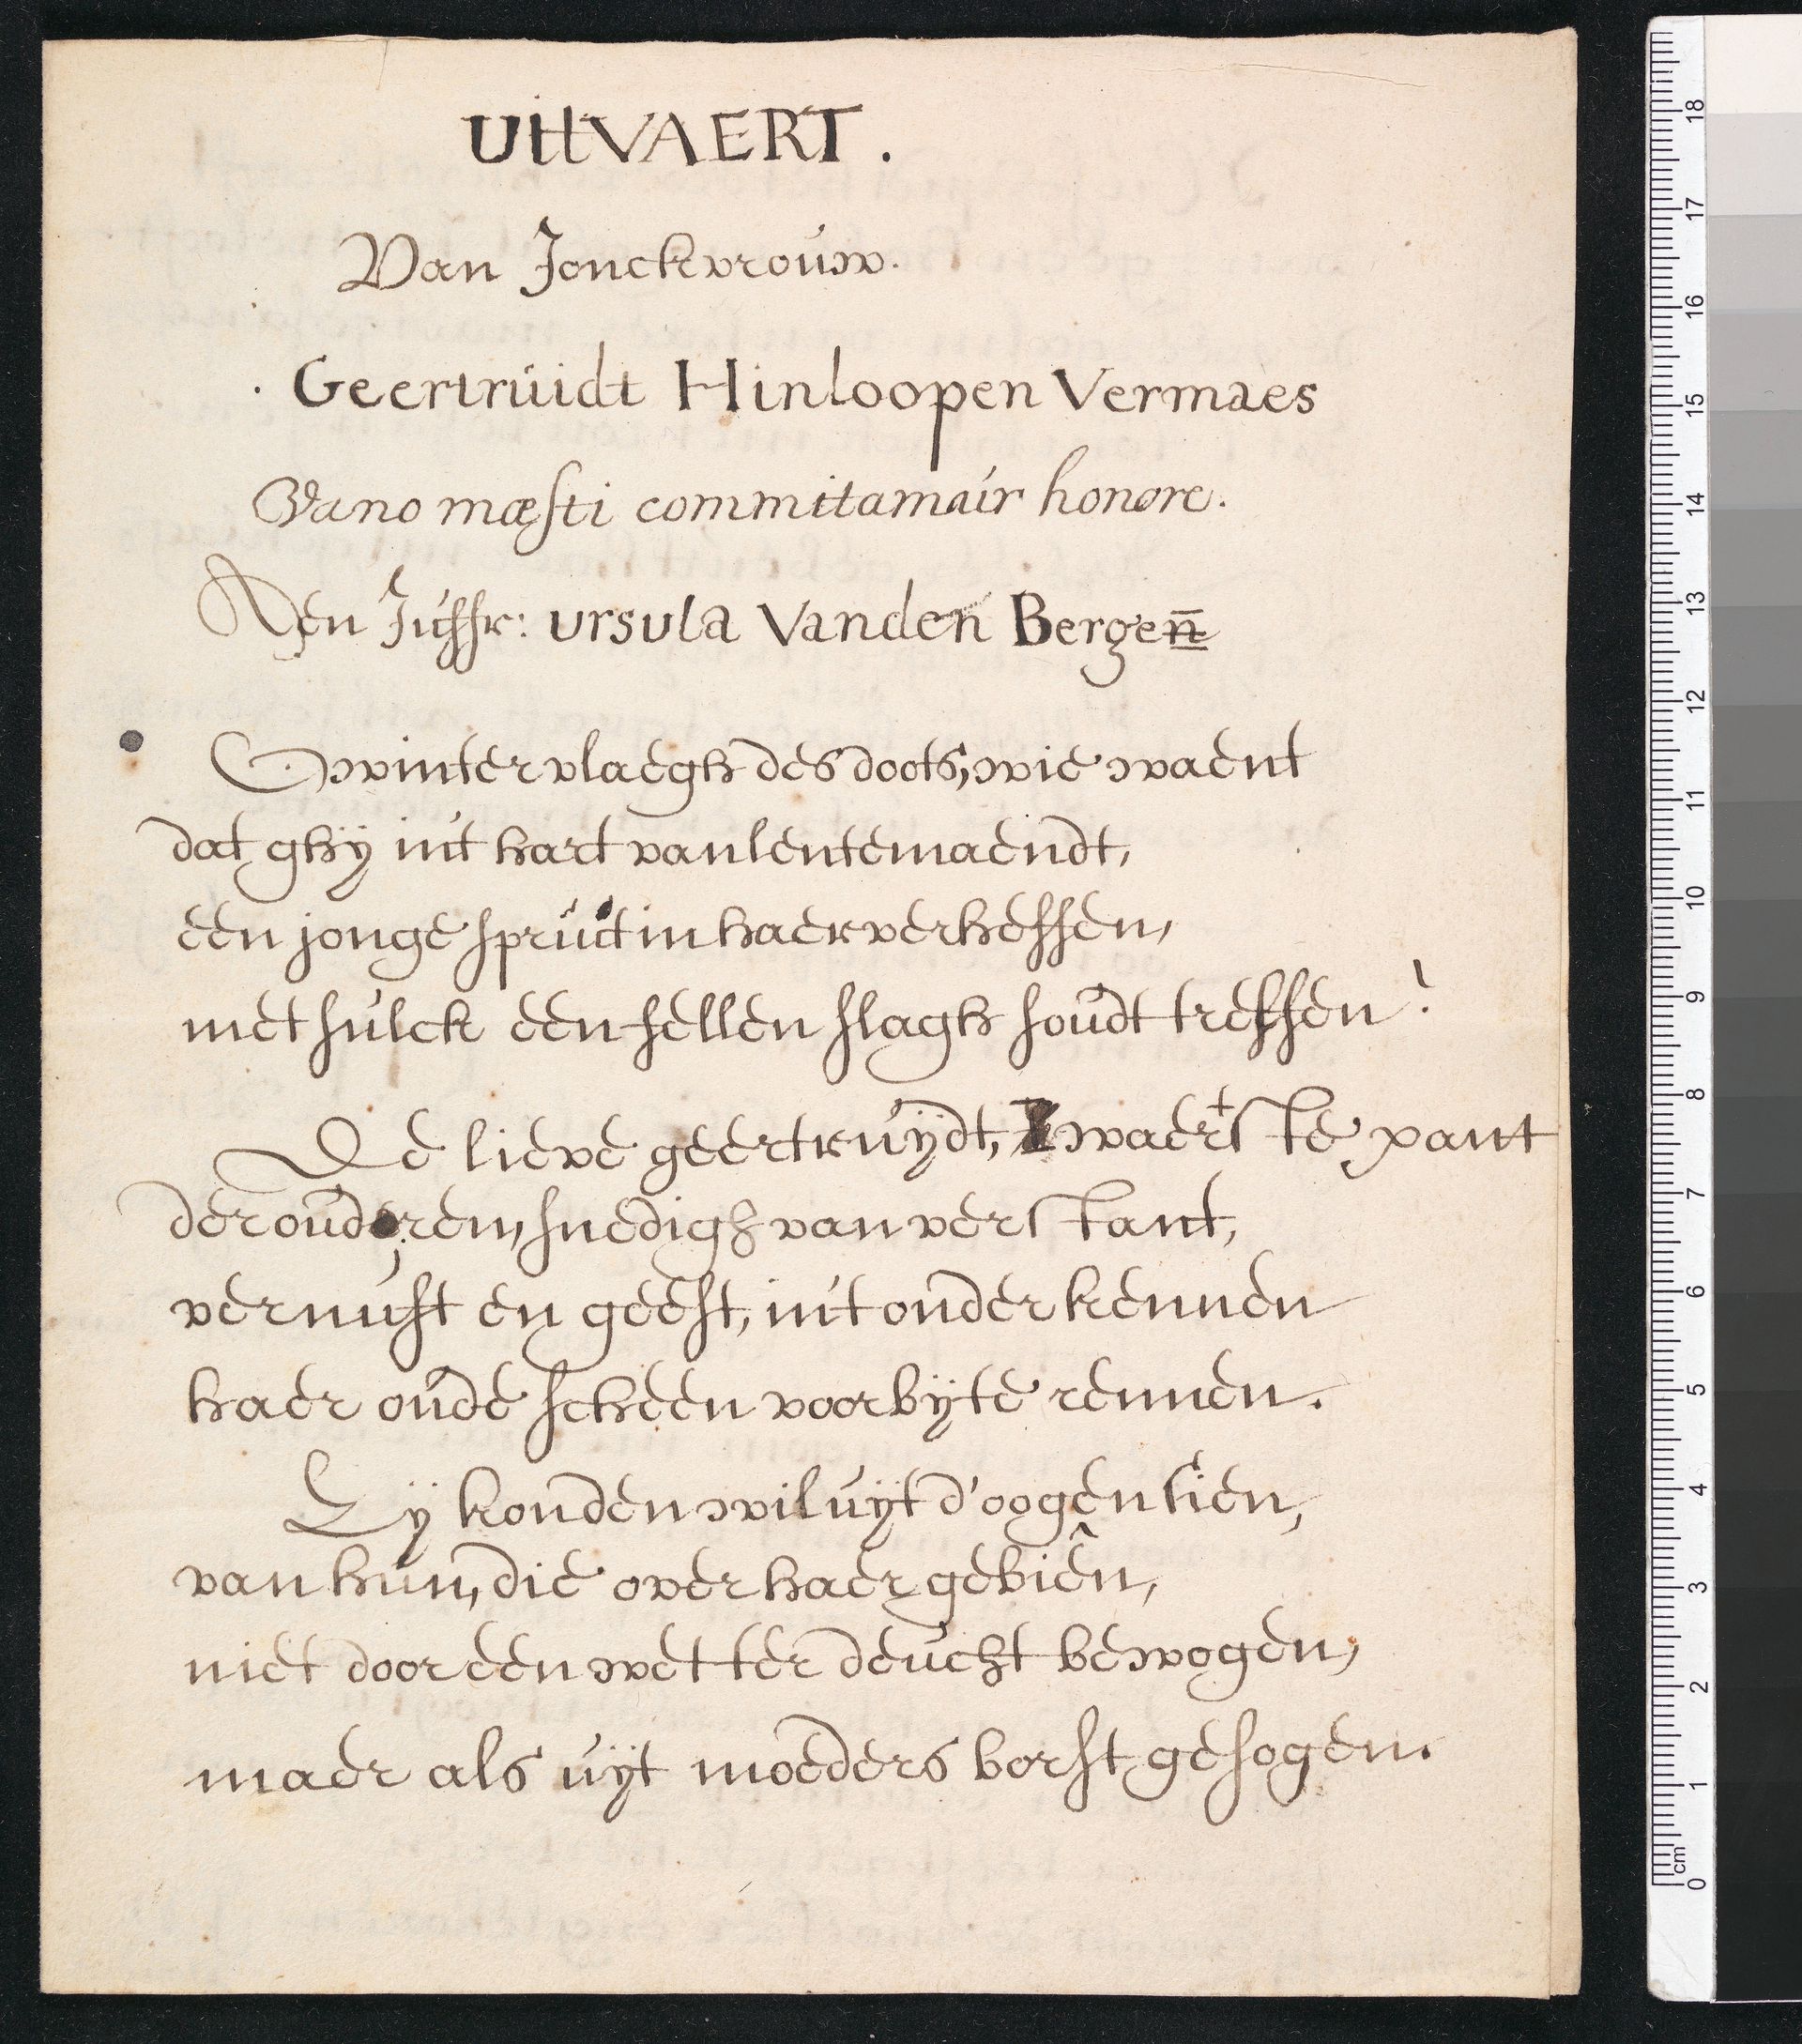 UitVAERT.
Van Jonckvrouw.
Geertruidt Hinloopen Vermaes
Vano mæsti commitamúir honore.
Aen Juffr: Ursula Vanden Bergen
O wintervlaegh des doots, wie waent
dat ghÿ in't hart van lentemaendt,
een jonge spruit in haer verheffen,
met sulck een fellen slagh soudt treffen?
De lieve geertruÿdt, 't waerste pant
der ouderen, snedigh van verstant,
vernuft en geest, in't onderkennen
haer oude scheen voorbÿ te rennen.
Zÿ kon den wil uÿt d'oogen sien,
van hun, die over haer gebiên,
niet door een wet ter deucht bewogen,
maer als uÿt moeders borst gesogen.
0 cm 1 2 3 4 5 6 7 8 9 10 11 12 13 14 15 16 17 18